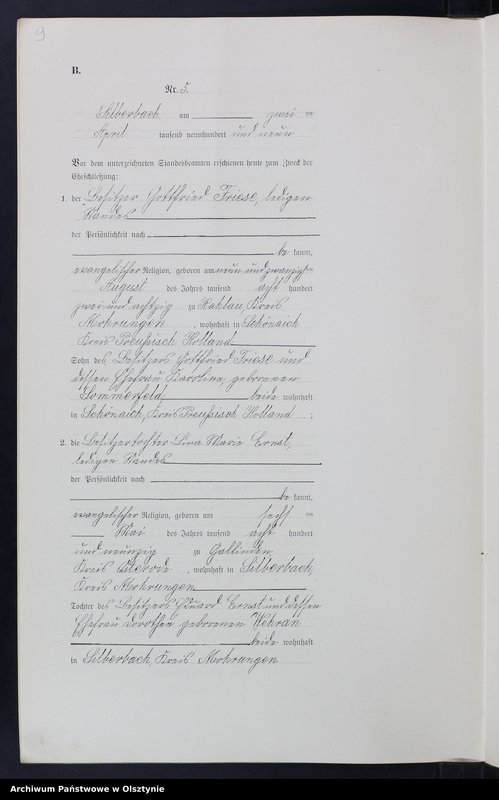 9
B.
Nr. 5.
Silberbach am zwei ten
April tausend neunhundert und neun
Vor dem unterzeichneten Standesbeamten erschienen heute zum Zweck der
Eheschließung:
1. der Besitzer Gottfried Friese, ledigen
Standes
der Persönlichkeit nach
be kannt,
evangelischer Religion, geboren am neun und zwanzigsten
August des Jahres tausend acht hundert
zwei und achtzig zu Rahlau, Kreis
Mohrungen, wohnhaft in Schönaich
Kreis Preußisch Holland
Sohn des Besitzers Gottfried Friese und
dessen Ehefrau Karoline geborenen
Sommerfeld, beide wohnhaft
in Schönaich, Kreis Preußisch Holland ;
2. die Besitzertochter Lina Marie Ernst,
ledigen Standes
der Persönlichkeit nach
be kannt,
evangelischer Religion, geboren am sechs ten
Mai des Jahres tausend acht hundert
und neunzig zu Gallinden,
Kreis Osterode, wohnhaft in Silberbach,
Kreis Mohrungen
Tochter des Besitzers Eduard Ernst und dessen
Ehefrau Dorothea geborenen Wehran
beide wohnhaft
in Silberbach, Kreis Mohrungen
Archiwum Państwowe w Olsztynie